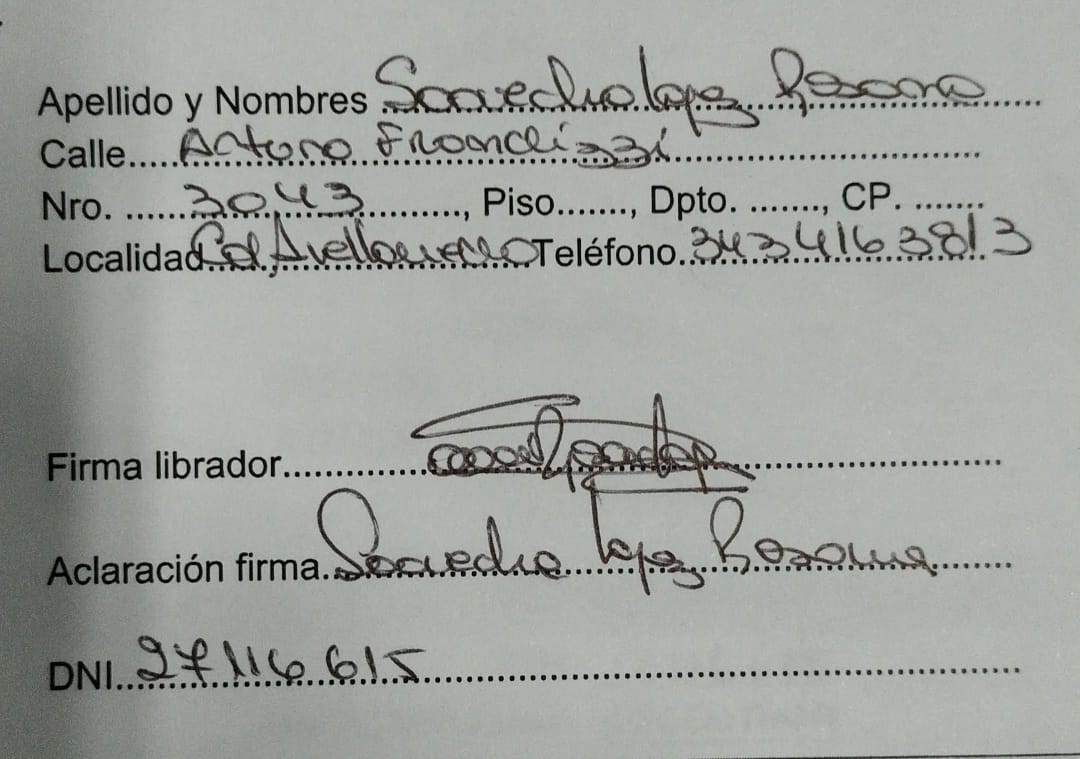 Apellido y Nombres Saavedra Lopez Rosana
Calle..... Arturo Francl
Nro. ......3043.........., Piso......., Dpto. ......., CP. .......
Localidad Col, Avellaneda Teléfono. 3434163813
Firma librador..............
Aclaración firma. Saavedra Lopez Rosana
DNI..27116615